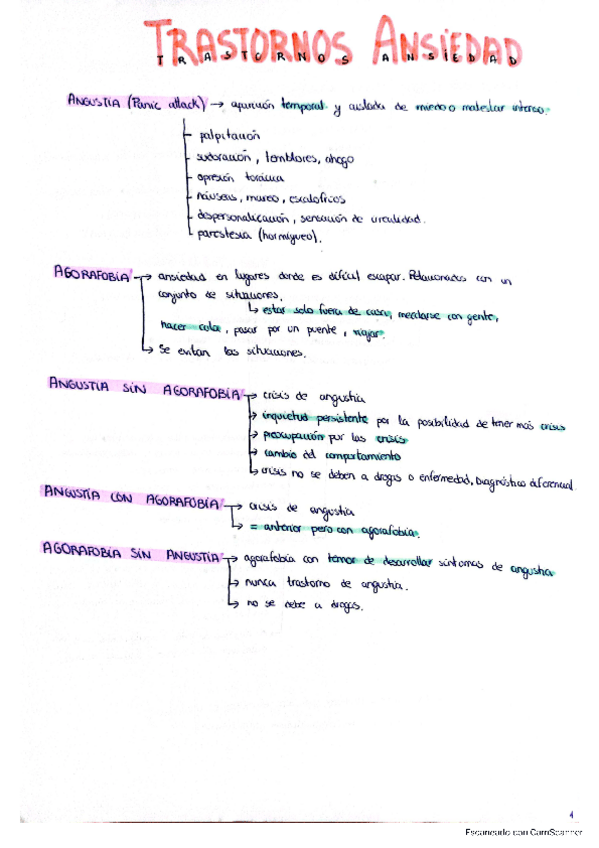 TRASTORNOS ANSIEDAD
TRASTORNOS ANSIEDAD
ANGUSTIA (Panic attack) → aparición temporal y aislada de miedo o malestar intenso.
palpitación
sudoración, temblores, ahogo
opresión torácica
náuseas, mareo, escalofríos
despersonalización, sensación de irrealidad.
parestesia (hormigueo).
AGORAFOBIA → ansiedad en lugares donde es difícil escapar. Relacionados con un
conjunto de situaciones.
↳ estar solo fuera de casa, mezclarse con gente,
hacer cola, pasar por un puente, viajar.
→ Se evitan las situaciones.
ANGUSTIA SIN AGORAFOBIA → crisis de angustia
→ inquietud persistente por la posibilidad de tener más crisis
→ preocupación por las crisis
→ cambio del comportamiento
→ crisis no se deben a drogas o enfermedad, Diagnóstico diferencial
ANGUSTIA CON AGORAFOBIA → crisis de angustia
→ = anterior pero con agorafobia.
AGORAFOBIA SIN ANGUSTIA → agorafobia con temor de desarrollar síntomas de angustia
→ nunca trastorno de angustia.
→ no se debe a drogas.
4
Escaneado con CamScanner